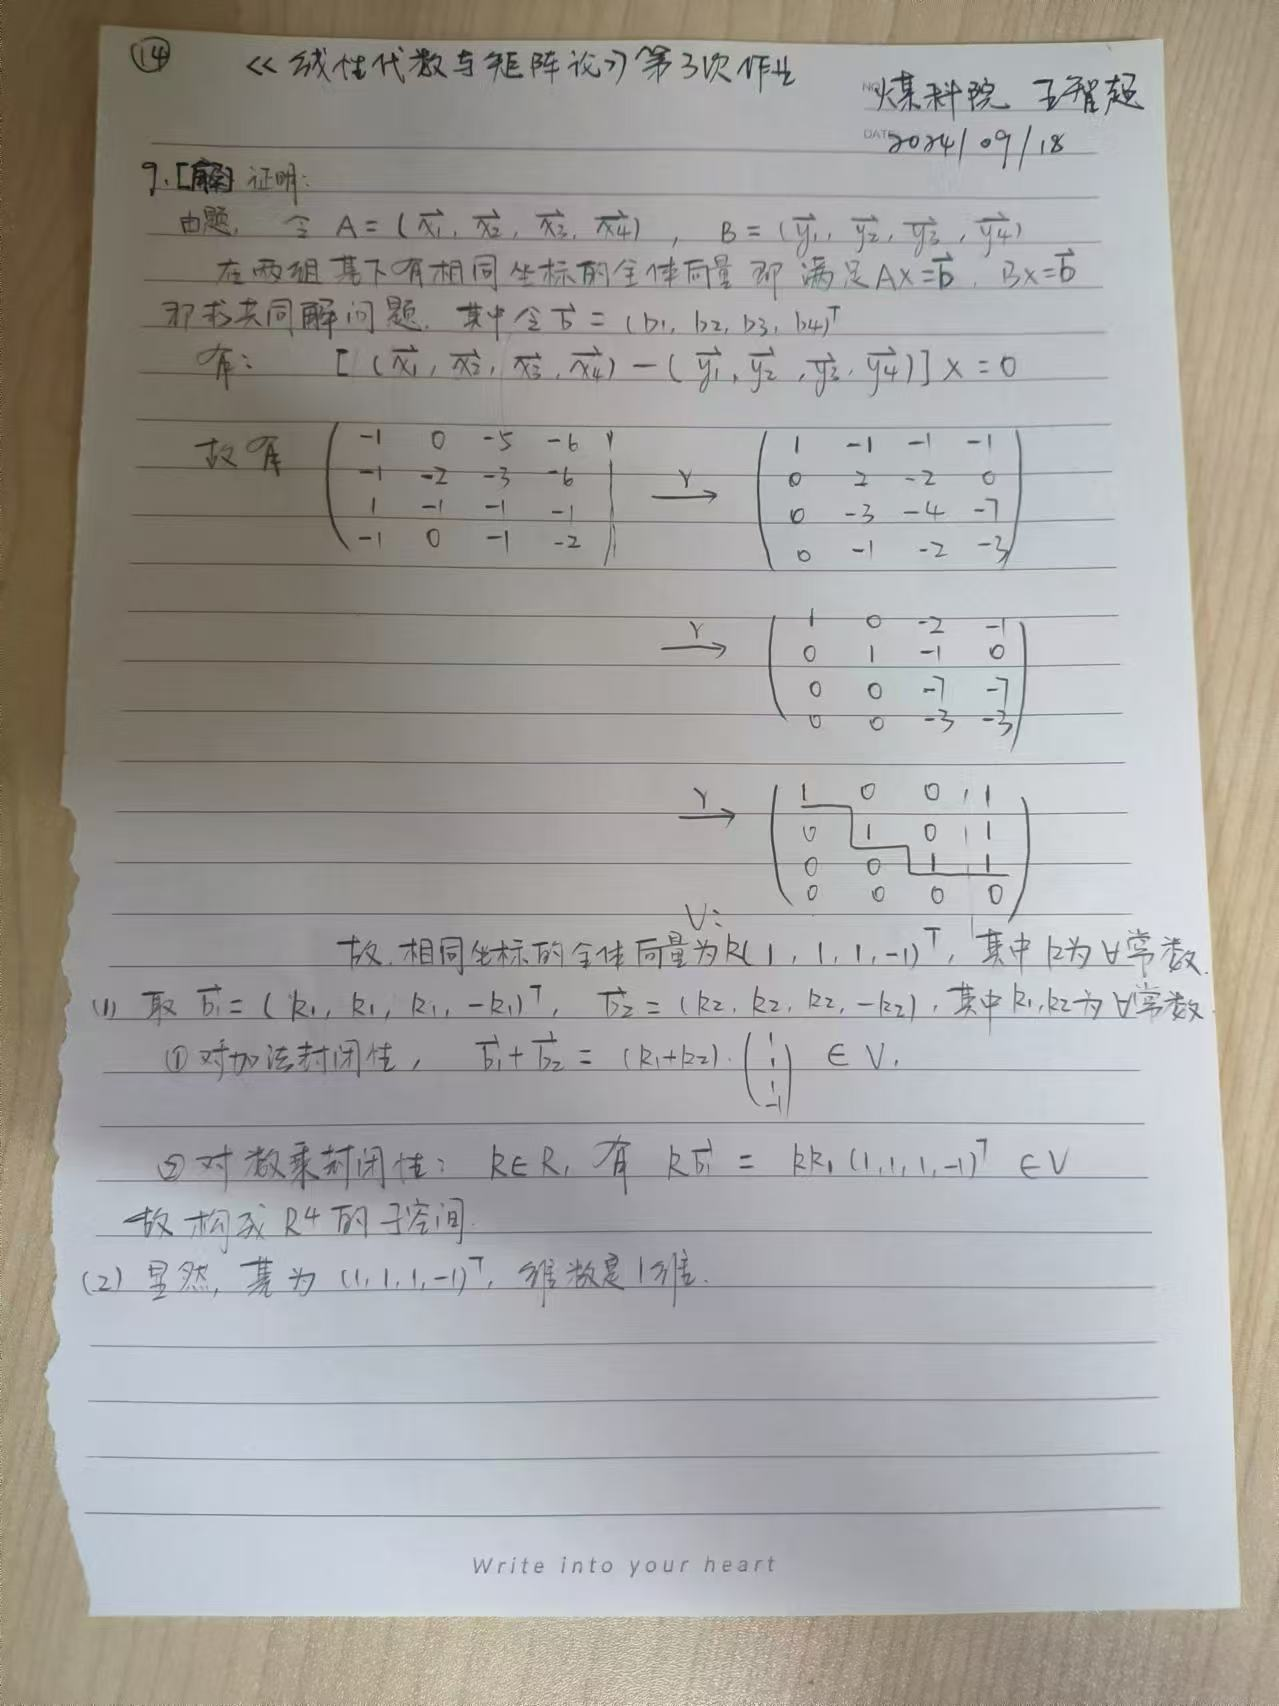 ⑭ 《线性代数与矩阵论》第3次作业
煤科院 王智超
DATE 2024/09/18
9.[解] 证明:
由题, 令 A=(x₁, x₂, x₃, x₄), B=(y₁, y₂, y₃, y₄)
在两组基下有相同坐标的全体向量即满足AX=b, BX=b
即求共同解问题. 其中令b=(b₁, b₂, b₃, b₄)ᵀ
有: [(x₁, x₂, x₃, x₄)-(y₁, y₂, y₃, y₄)]X=0
故有 -1 0 -5 -6 r→ 1 -1 -1 -1
-1 -2 -3 -6 0 2 -2 0
1 -1 -1 -1 0 -3 -4 -7
-1 0 -1 -2 0 -1 -2 -3
r→ 1 0 -2 -1
0 1 -1 0
0 0 -7 -7
0 0 -3 -3
r→ 1 0 0 1
0 1 0 1
0 0 1 1
0 0 0 0
V:
故.相同坐标的全体向量为k(1, 1, 1, -1)ᵀ, 其中k为∀常数.
(1) 取 b₁=(k₁, k₁, k₁, -k₁)ᵀ, b₂=(k₂, k₂, k₂, -k₂), 其中k₁,k₂为∀常数.
①对加法封闭性, b₁+b₂=(k₁+k₂)·(1 1 1 -1) ∈V.
②对数乘封闭性: k∈R, 有 kb₁ = kk₁(1,1,1,-1)ᵀ ∈V
故构成R4的子空间.
(2) 显然, 基为 (1,1,1,-1)ᵀ, 维数是1维.
Write into your heart